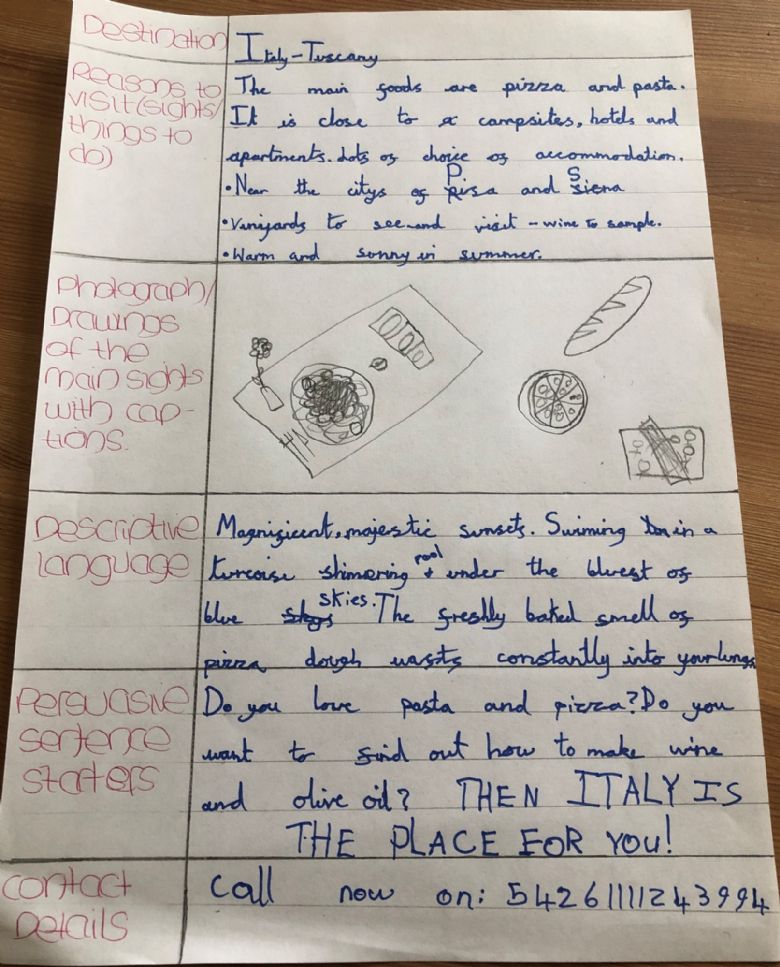 Destination
Italy-Tuscany
Reasons to
visit (sights/
things to
do)
The main foods are pizza and pasta.
It is close to campsites, hotels and
apartments. Lots of choice of accommodation.
•Near the citys of Pisa and Siena
•Vanijards to see and visit - wine to sample.
•Warm and sonny in summer.
Photograph/
Drawings
of the
main sights
with cap-
tions.
Descriptive
language
Magnificent, majestic sunsets. Swiming in a
turcoise shimering pool under the bluest of
blue skies. The freshly baked smell of
pizza dough wafts constantly into your lungs
Persuasive
sentence
starters
Do you love pasta and pizza? Do you
want to find out how to make wine
and olive oil? THEN ITALY IS
THE PLACE FOR YOU!
contact
Details
Call now on: 542611111243994